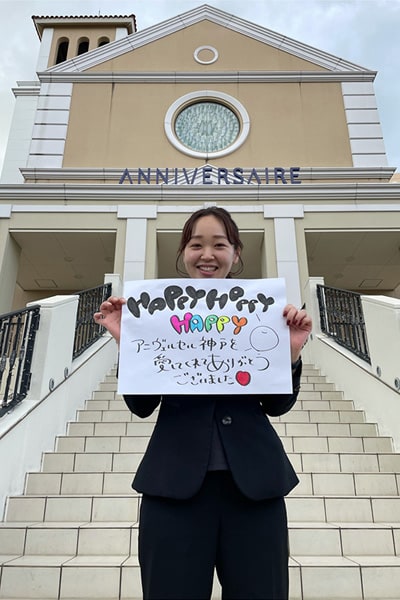 ANNIVERSAIRE
HAPPY HAPPY
HAPPY
アニヴェルセル神戸を
愛してくれてありがとう
ございました